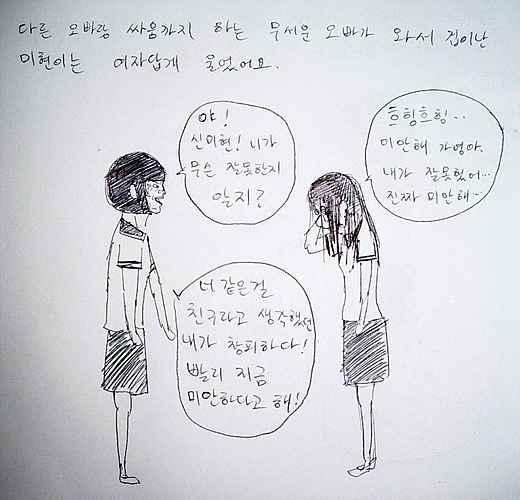 다른 오빠랑 싸움까지 하는 무서운 오빠가 와서 겁이난
미현이는 여자답게 울었어요.
야!
신미현! 니가
무슨 잘못한지
알지?
흐힝흐힝..
미안해 가영아.
내가 잘못했어...
진짜 미안해...
너 같은걸
친구라고 생각했던
내가 창피하다!
빨리 지금
미안하다고 해!